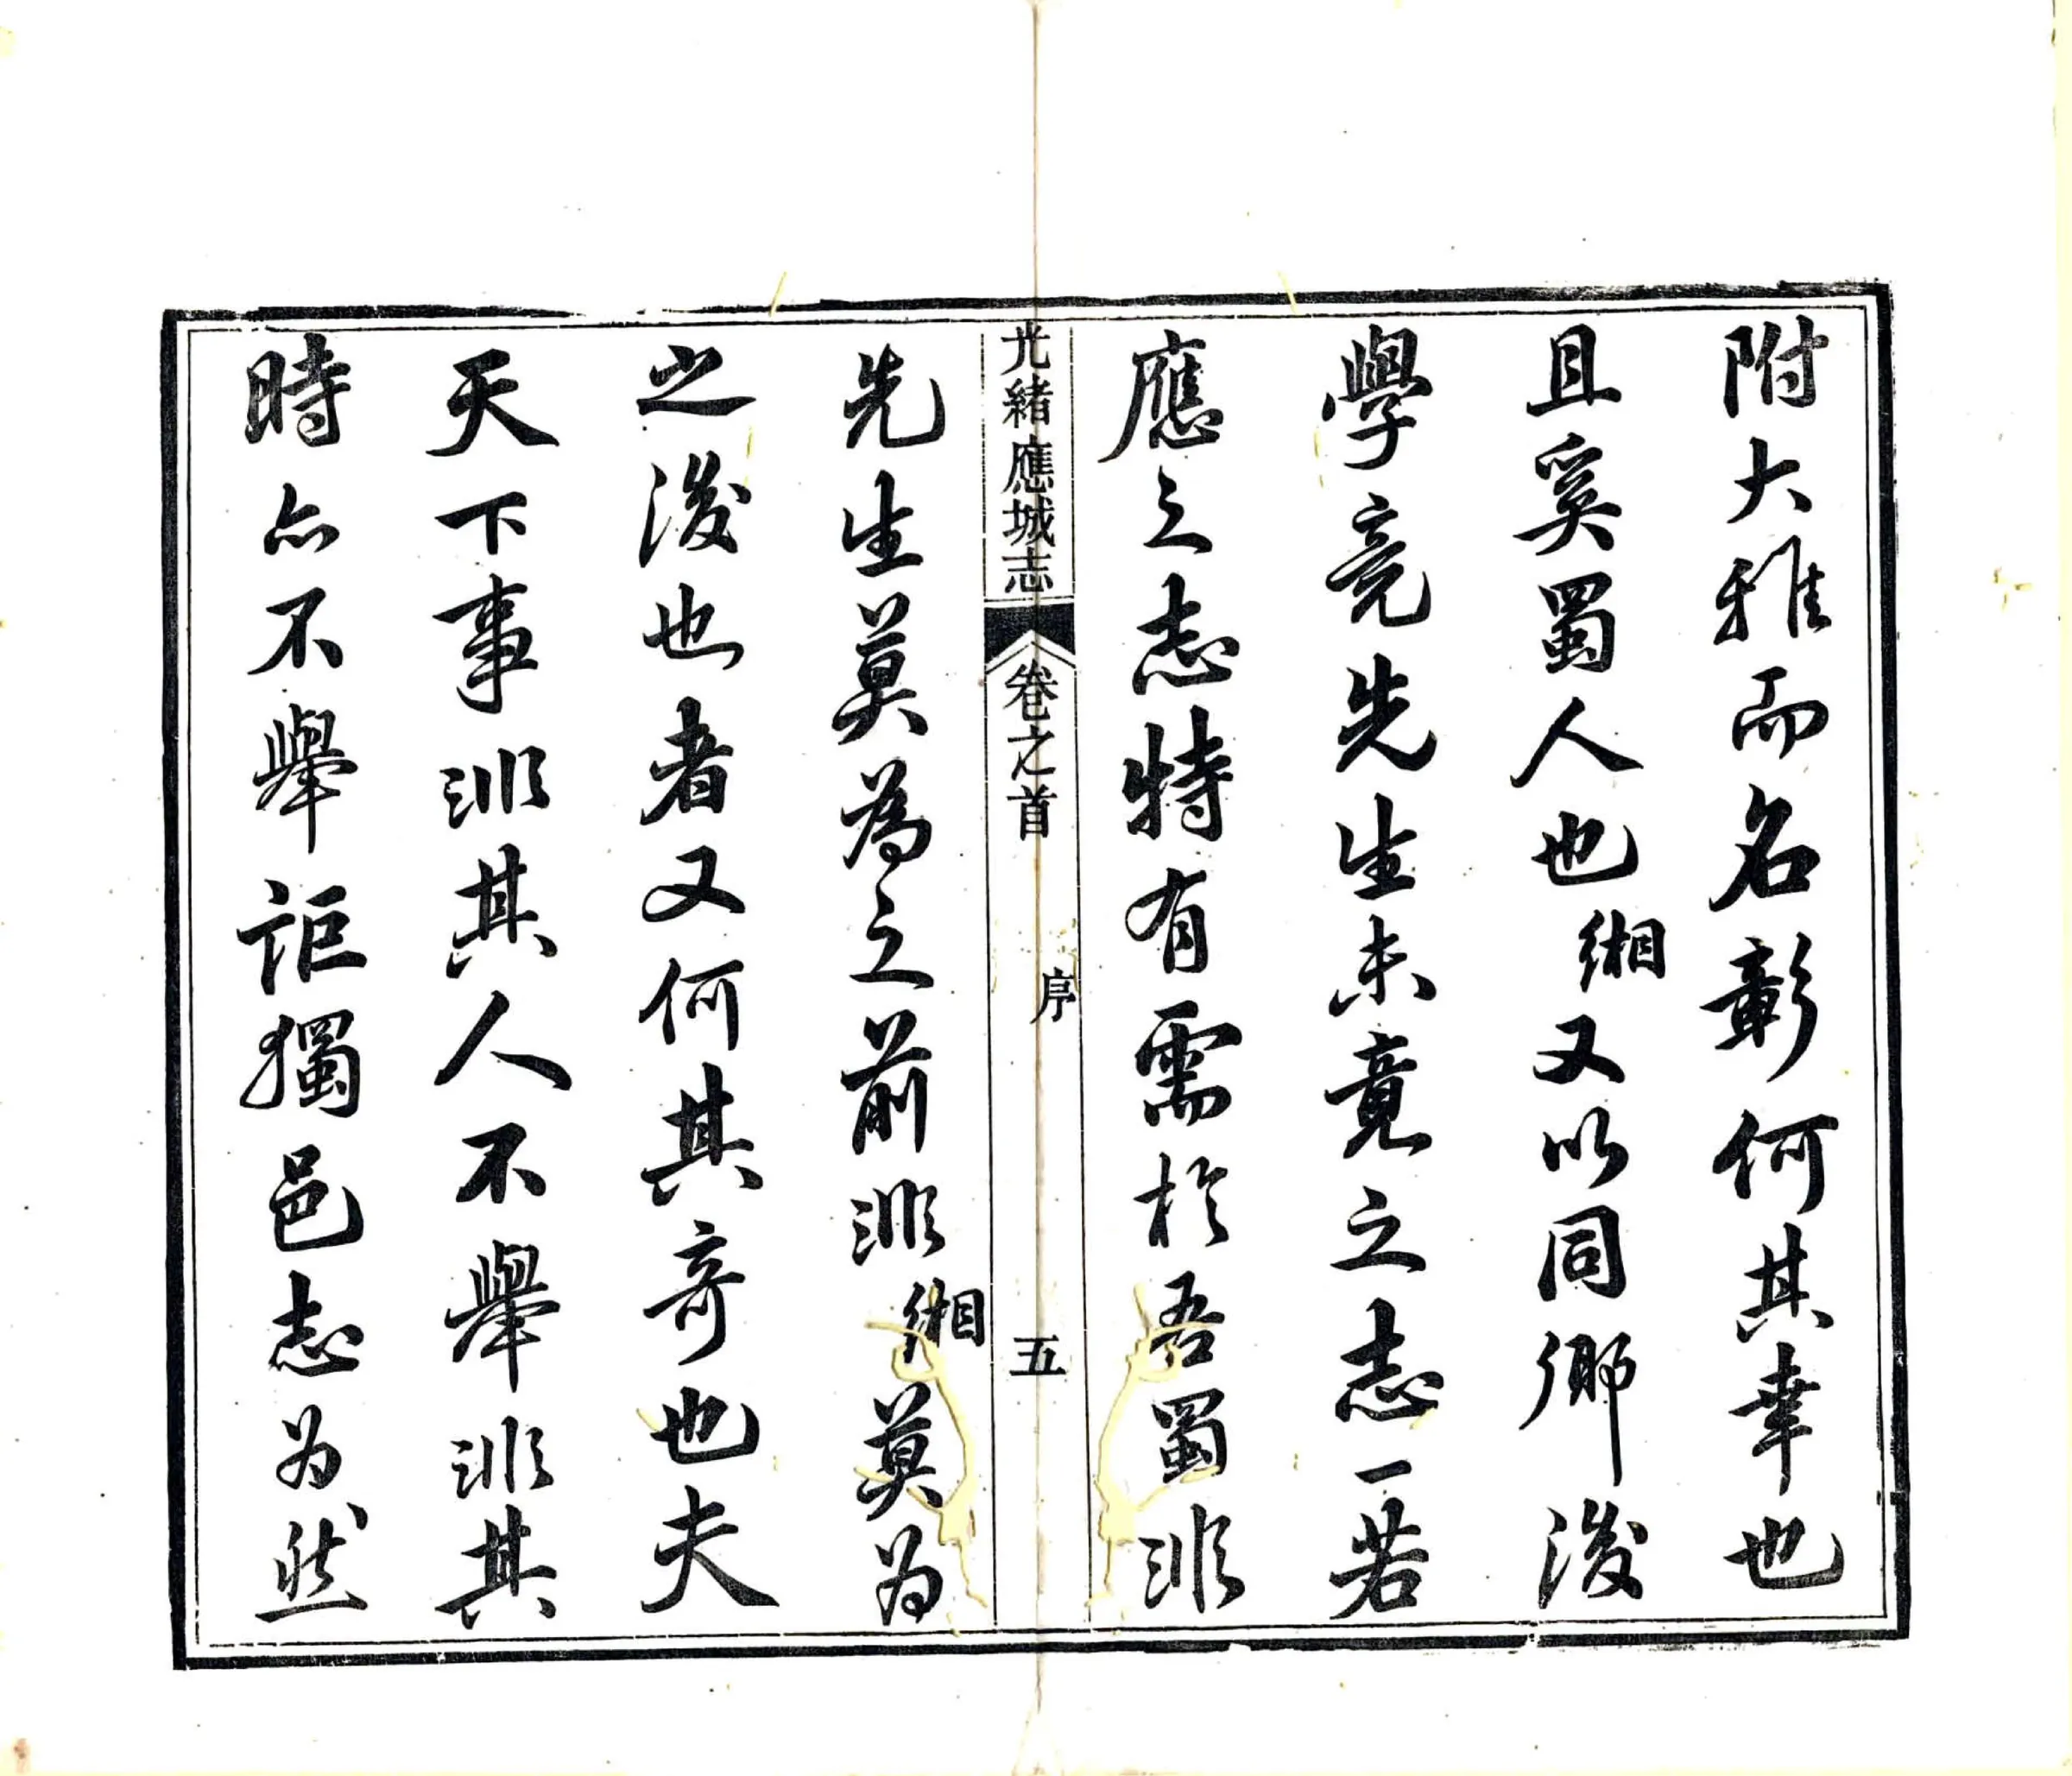 附大雅而名彰何其幸也
且奚蜀人也緗又以同鄉後
學竟先生未竟之志一若
應之志特有需於吾蜀非
光緒應城志 卷之首 序 五
先生莫為之前非緗莫为
之後也者又何其奇也夫
天下事非其人不舉非其
時亦不舉詎獨邑志为然